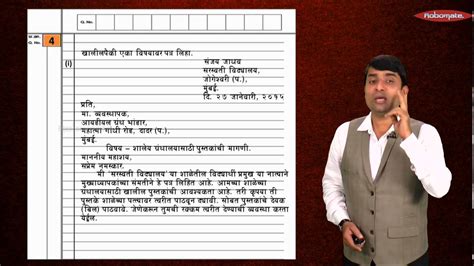 Robomate+
Q. No.
Q. No.
4
खालीलपैकी एका विषयावर पत्र लिहा.
(i)
संजय जाधव
सरस्वती विद्यालय,
जोगेश्वरी (प.),
मुंबई.
दि. २७ जानेवारी, २०१५
प्रति,
मा. व्यवस्थापक,
आयडीयल ग्रंथ भांडार,
महात्मा गांधी रोड, दादर (प.),
मुंबई.
विषय - शालेय ग्रंथालयासाठी पुस्तकांची मागणी.
माननीय महाशय,
सप्रेम नमस्कार.
मी 'सरस्वती विद्यालया' या शाळेतील विद्यार्थी प्रमुख या नात्याने
मुख्याध्यापकांच्या संमतीने हे पत्र लिहित आहे. आमच्या शाळेच्या
ग्रंथालयासाठी खालील पुस्तकांची आवश्यकता आहे. तरी कृपया ती
पुस्तके शाळेच्या पत्त्यावर त्वरीत पाठवून द्यावी. सोबत पुस्तकांचे देयक
(बिल) पाठवावे. जेणेकरून तुमची रक्कम त्वरीत देण्याची व्यवस्था करता
येईल.